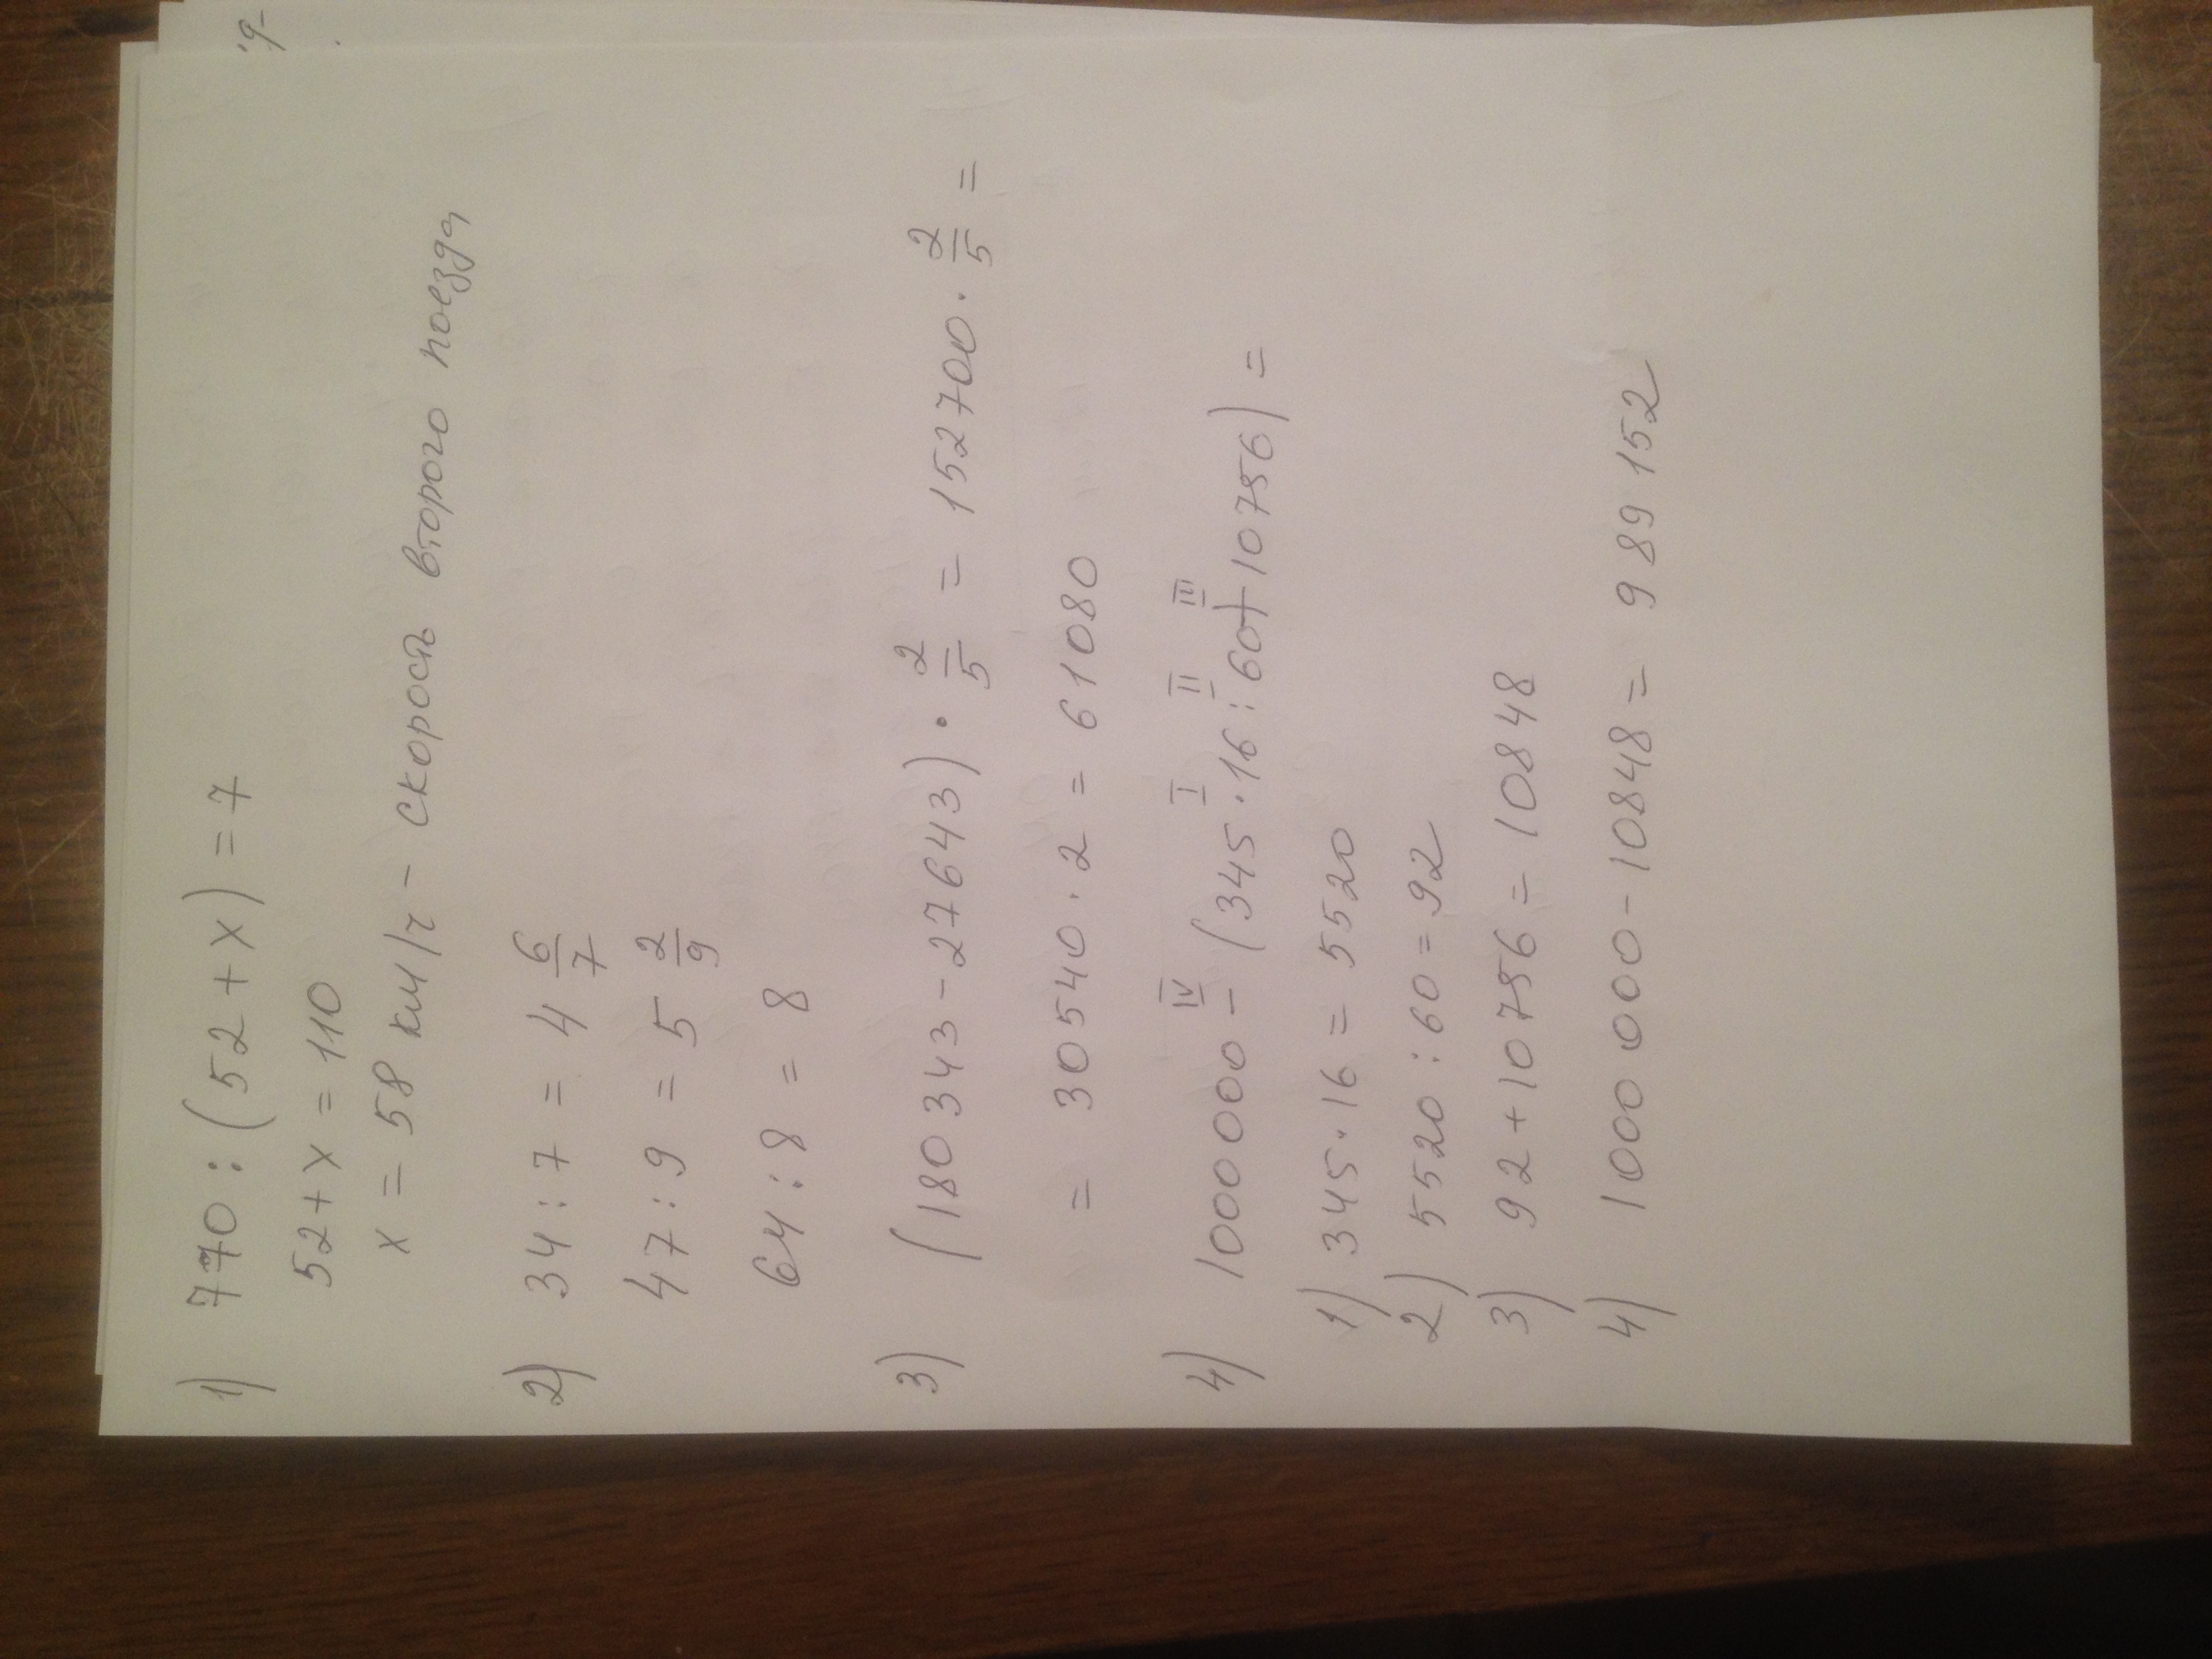 1) 770 : (52 + x) = 7
52 + x = 110
x = 58 км/ч - скорость второго поезда
2) 34 : 7 = 4 6/7
47 : 9 = 5 2/9
64 : 8 = 8
3) (180343 - 27643) · 2/5 = 152700 · 2/5 =
= 30540 · 2 = 61080
IV I II III
4) 1000000 - (345 · 16 : 60 + 10756) =
1) 345 · 16 = 5520
2) 5520 : 60 = 92
3) 92 + 10756 = 10848
4) 1000 000 - 10848 = 989152